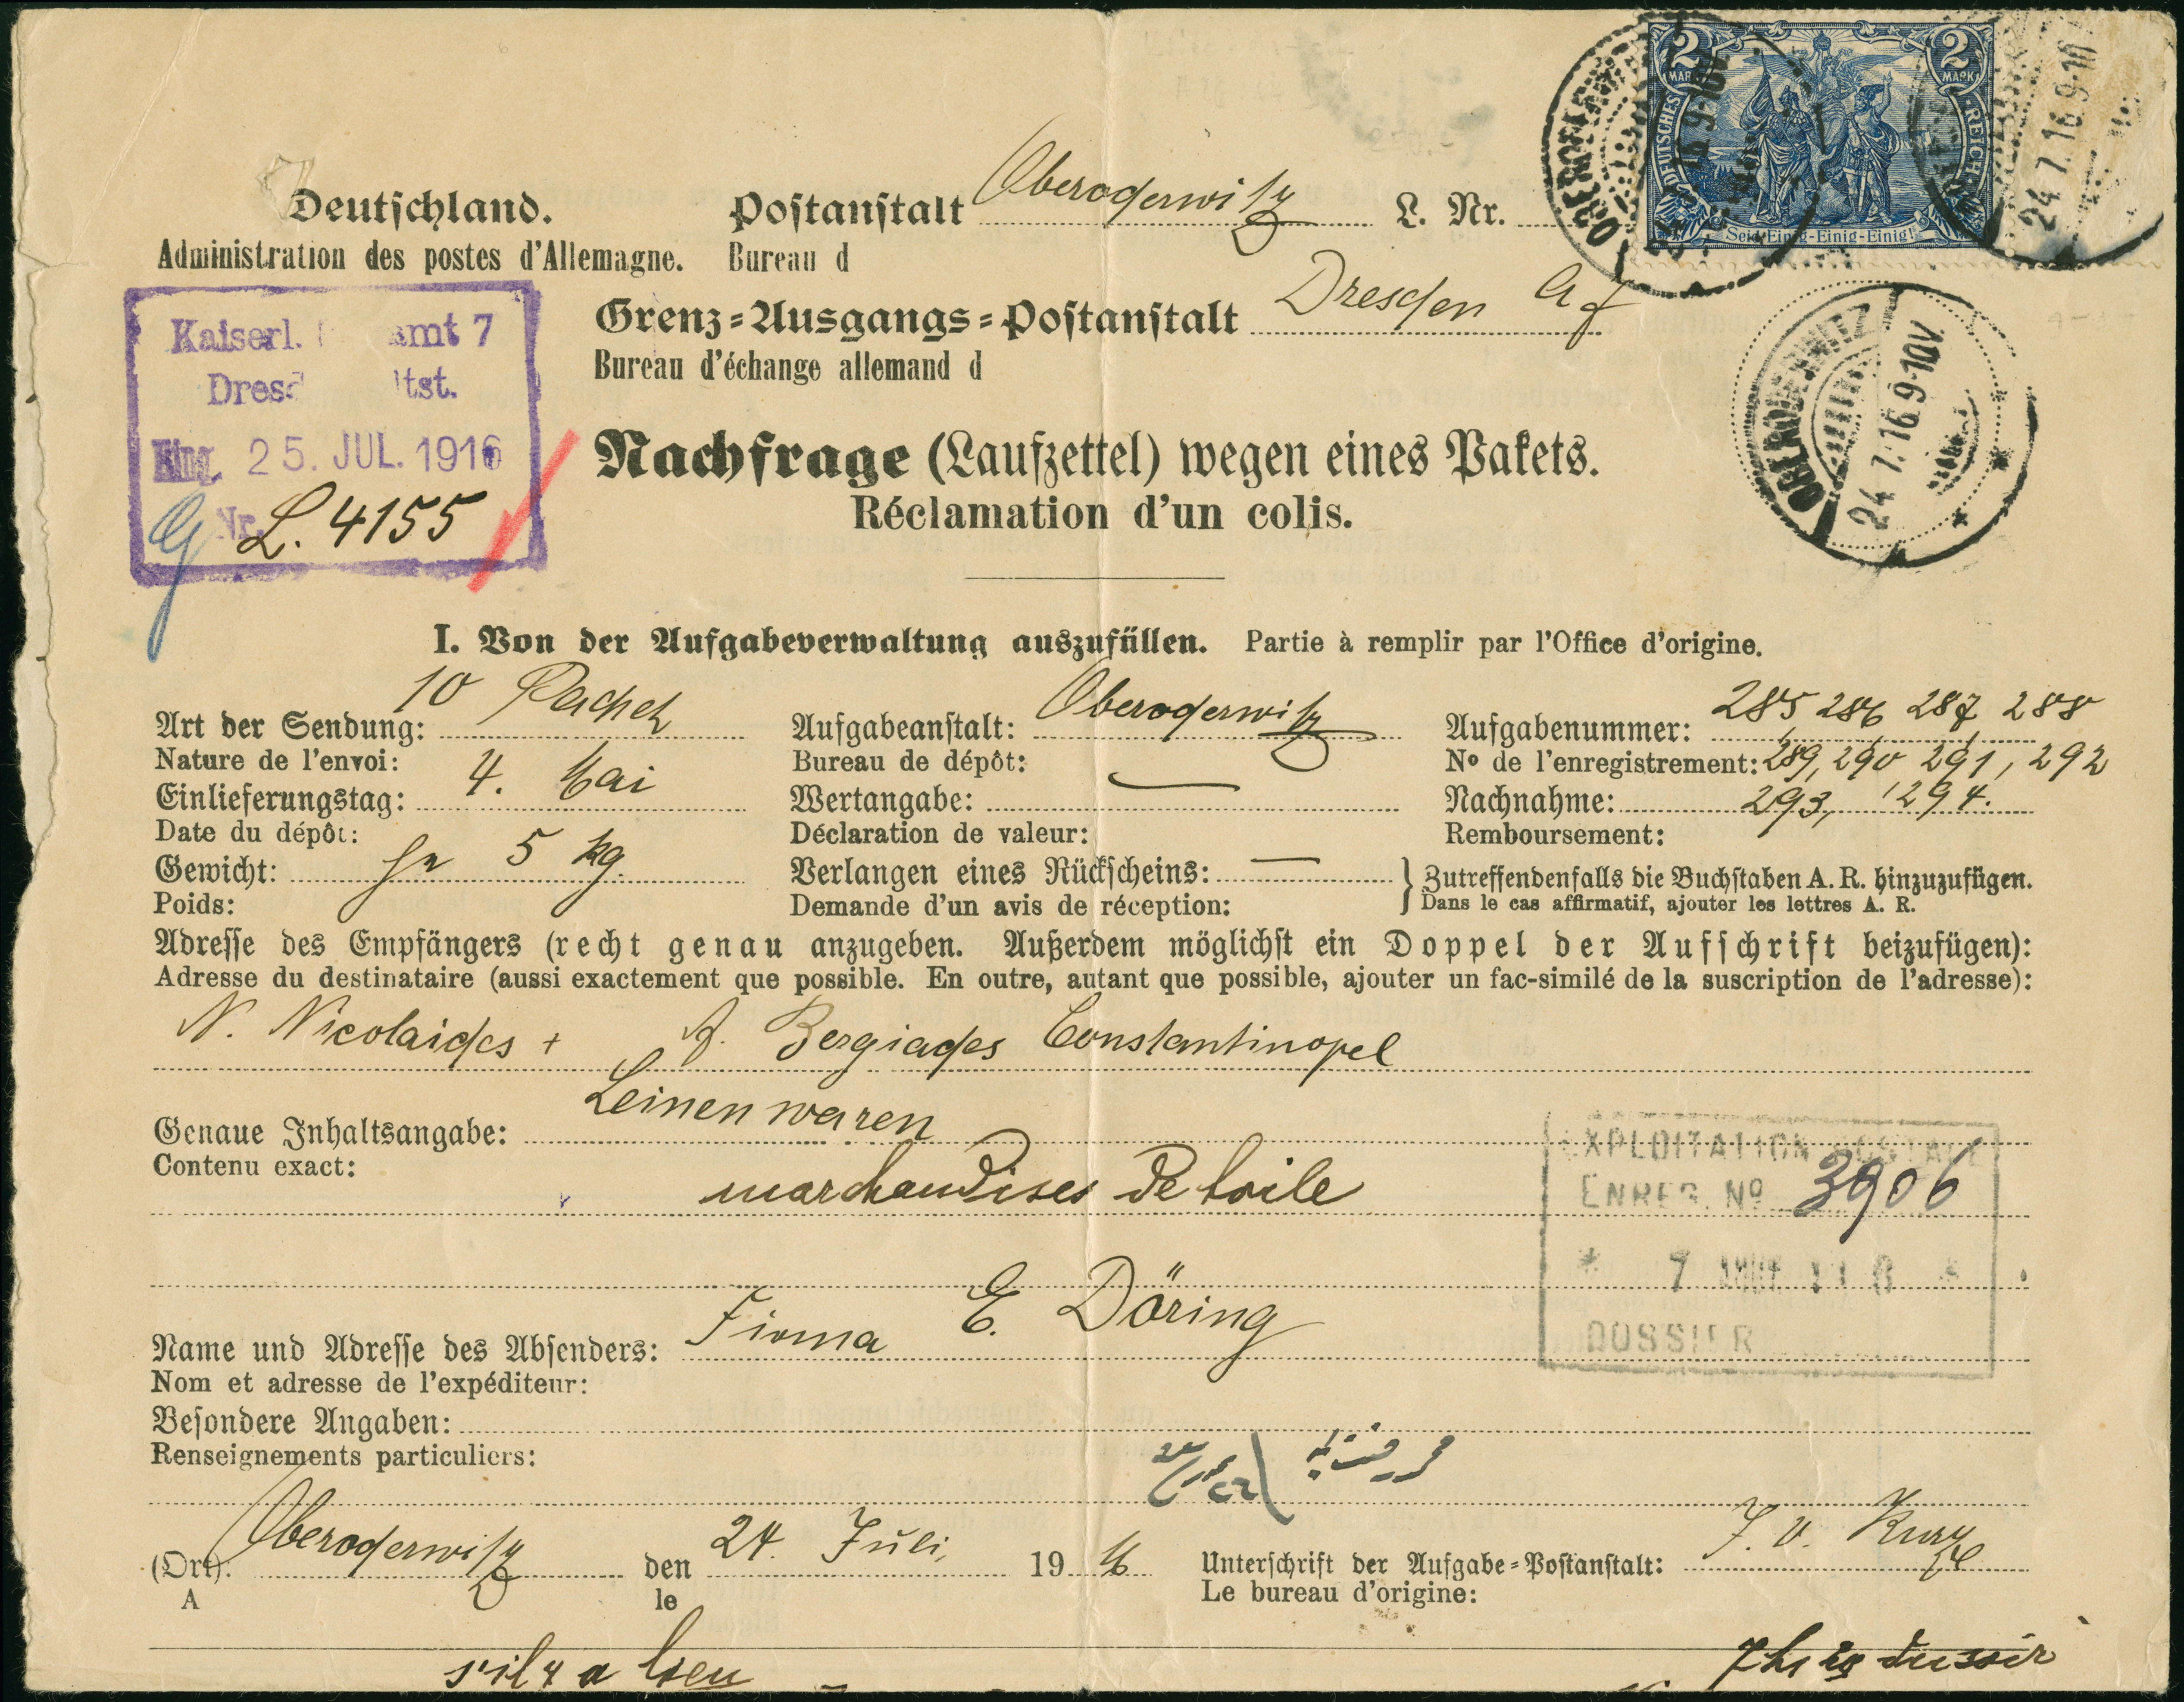 2 MARK 2 MARK
DEUTSCHES REICH
Seid Einig-Einig-Einig!
24 7.16 9-10V
Deutschland. Postanstalt Oberoderwitz L. Nr.
Administration des postes d'Allemagne. Bureau d
Grenz-Ausgangs-Postanstalt Dresden
Bureau d'échange allemand d
Kaiserl. amt 7
Dresd tst.
Eing. 25. JUL. 1916
Nr. L. 4155
OBERODERWITZ
24 7.16 9-10V.
Nachfrage (Laufzettel) wegen eines Pakets.
Réclamation d'un colis.
I. Von der Aufgabeverwaltung auszufüllen. Partie à remplir par l'Office d'origine.
Art der Sendung: 10 Aufgabeanstalt: Oberoderwitz Aufgabenummer: 285, 286, 287, 288
Nature de l'envoi: Bureau de dépôt: No de l'enregistrement: 289, 290, 291, 292
Einlieferungstag: 4. Mai Wertangabe: — Nachnahme: 293, 294.
Date du dépôt: Déclaration de valeur: Remboursement:
Gewicht: je 5 kg. Verlangen eines Rückscheins: — } Zutreffendenfalls die Buchstaben A. R. hinzuzufügen.
Poids: Demande d'un avis de réception: Dans le cas affirmatif, ajouter les lettres A. R.
Adresse des Empfängers (recht genau anzugeben. Außerdem möglichst ein Doppel der Aufschrift beizufügen):
Adresse du destinataire (aussi exactement que possible. En outre, autant que possible, ajouter un fac-similé de la suscription de l'adresse):
N. Nicolaides + A. Zergiades Constantinopel
Genaue Inhaltsangabe: Leinenwaren
Contenu exact:
marchandises de toile
EXPLOITATION POSTALE
ENREG. No 3906
* 7 AOUT 1916 *
DOSSIER
Name und Adresse des Absenders: Firma E. Döring
Nom et adresse de l'expéditeur:
Besondere Angaben:
Renseignements particuliers:
(Ort): Oberoderwitz den 24. Juli 1916 Unterschrift der Aufgabe-Postanstalt: J. V.
A le Le bureau d'origine:
s'il y a lieu